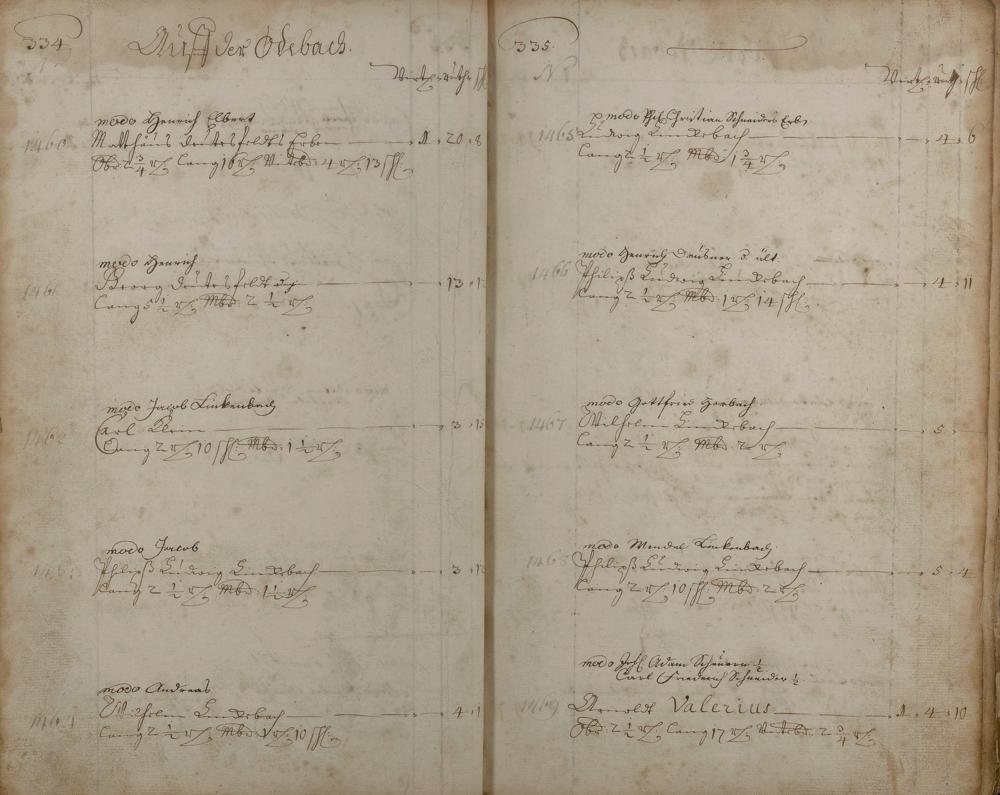 334.
Auff der Odebach.
Virtl. ruth. sch
modo Henrich Elbert
1460 Matthäus Deutesfeldts Erben 1. 20. 8
Obr 2 3/4 rh. Lang 16 rh. Undr 4 rh. 13 sch.
modo Henrich
1461 Georg Deutesfeldt 13.
Lang 5 1/2 rh. Mbr. 2 1/2 rh.
modo Jacob Linkenbach
1462 Carl Klein 3. 15
Lang 2 rh. 10 sch. Mbr. 1 1/2 rh.
modo Jacob
1463 Philipß Ludwig Linkebach 3.
Lang 2 1/2 rh. Mbr. 1 1/2 rh.
modo Andreas
1464 Wilhelm Linkebach 4.
Lang 2 1/2 rh. Mbr. 1 rh. 10 sch.
335.
N.
Virtl. ruth. sch
modo Phil. Christian Schneiders Erb.
1465 Ludwig Linkebach 4. 6
Lang 2 1/2 rh. Mbr. 1 3/4 rh.
modo Henrich Deusner d. ält.
1466 Philipß Ludwig Linkebach 4. 11
Lang 2 1/2 rh. Mbr. 1 rh. 14 sch.
modo Gottfried Horbach
1467 Wilhelm Linkebach 5.
Lang 2 1/2 rh. Mbr. 2 rh.
modo Wendel Linkenbach
1468 Philipß Ludwig Linkebach 5. 4
Lang 2 rh. 10 sch. Mbr. 2 rh.
modo Joh. Adam Scheuern 1/2
Carl Friedrich Schneider 1/2
1469 Arnoldt Valerius 1. 4. 10
Obr. 2 1/2 rh. Lang 17 rh. Undr. 2 3/4 rh.